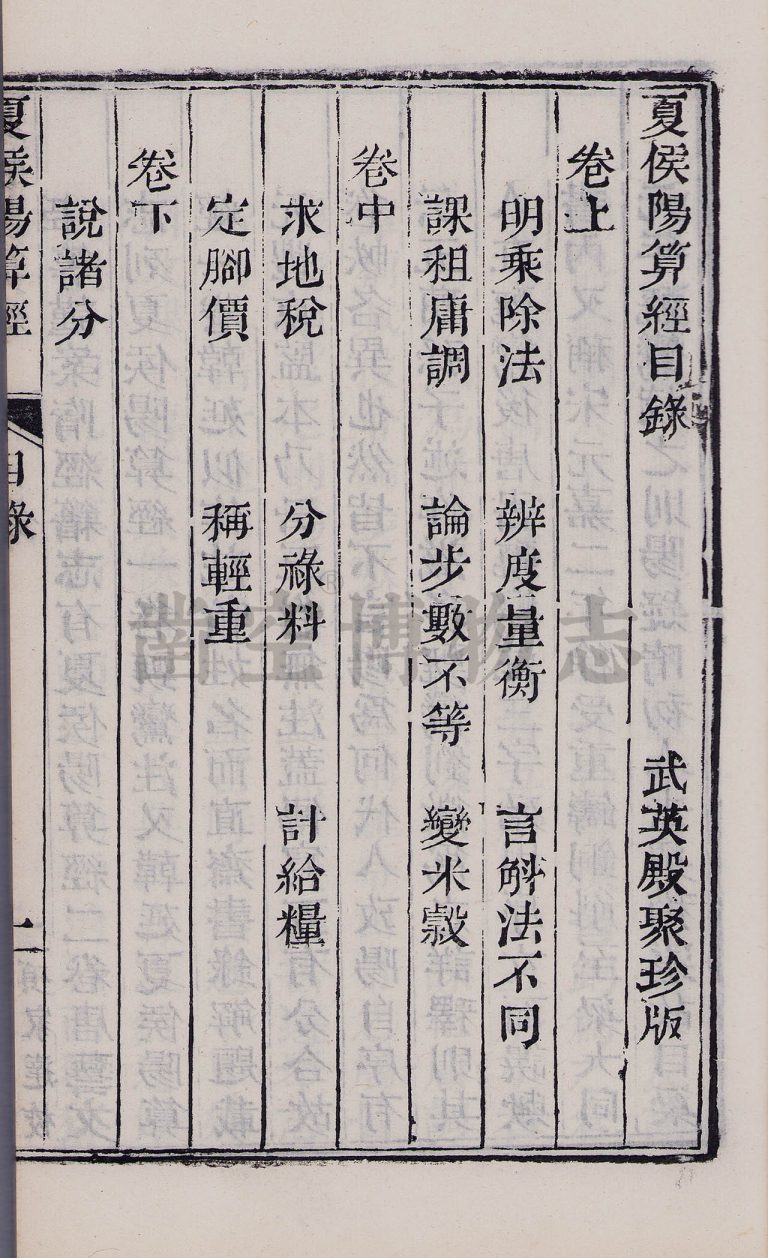 夏侯陽算經目錄 武英殿聚珍版
卷上
明乘除法 辨度量衡 言斛法不同
課租庸調 論步數不等 變米穀
卷中
求地稅 分祿料 計給糧
定腳價 稱輕重
卷下
說諸分
夏侯陽算經 目錄 一